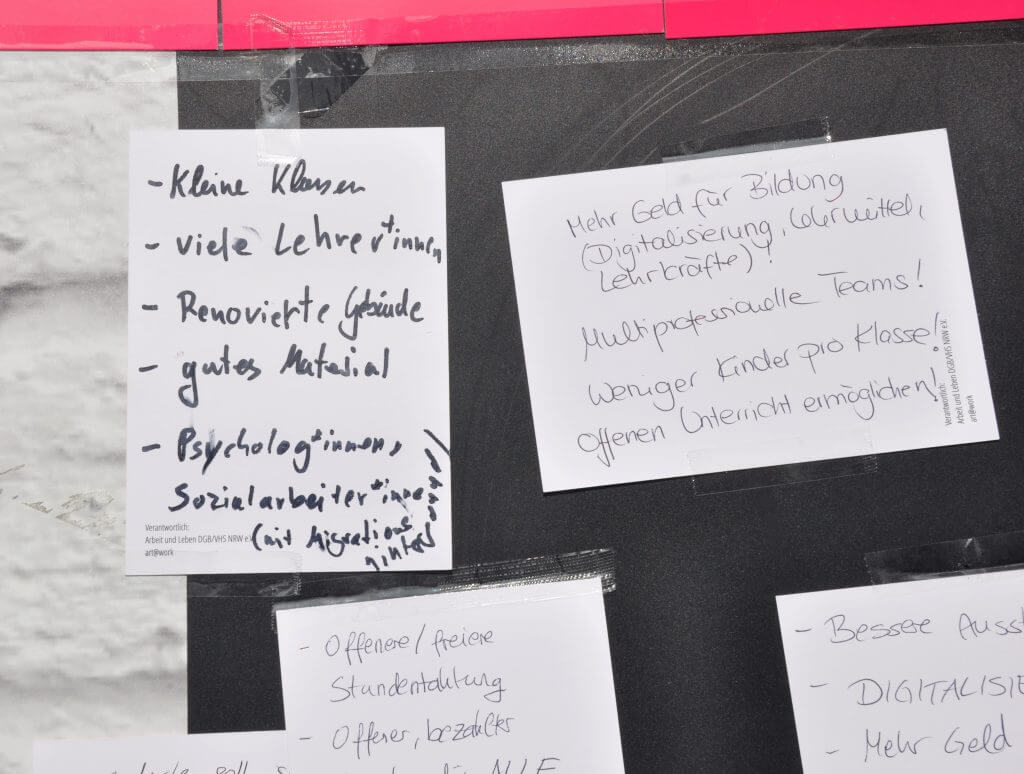 - Kleine Klassen
- viele Lehrer*innen
- Renovierte Gebäude
- gutes Material
- Psycholog*innen,
Sozialarbeiter*innen
(mit Migrations
hinter
Verantwortlich:
Arbeit und Leben DGB/VHS NRW e.V.
art@work
Mehr Geld für Bildung
(Digitalisierung, Lehrmittel,
Lehrkräfte)!
Multiprofessionelle Teams!
Weniger Kinder pro Klasse!
Offenen Unterricht ermöglichen!
Verantwortlich:
Arbeit und Leben DGB/VHS NRW e.V.
art@work
- Offenere/freiere
Stundentaktung
- Offener, bezahlter
ALLE
- Bessere Ausst
- DIGITALISIE
- Mehr Geld
soll s